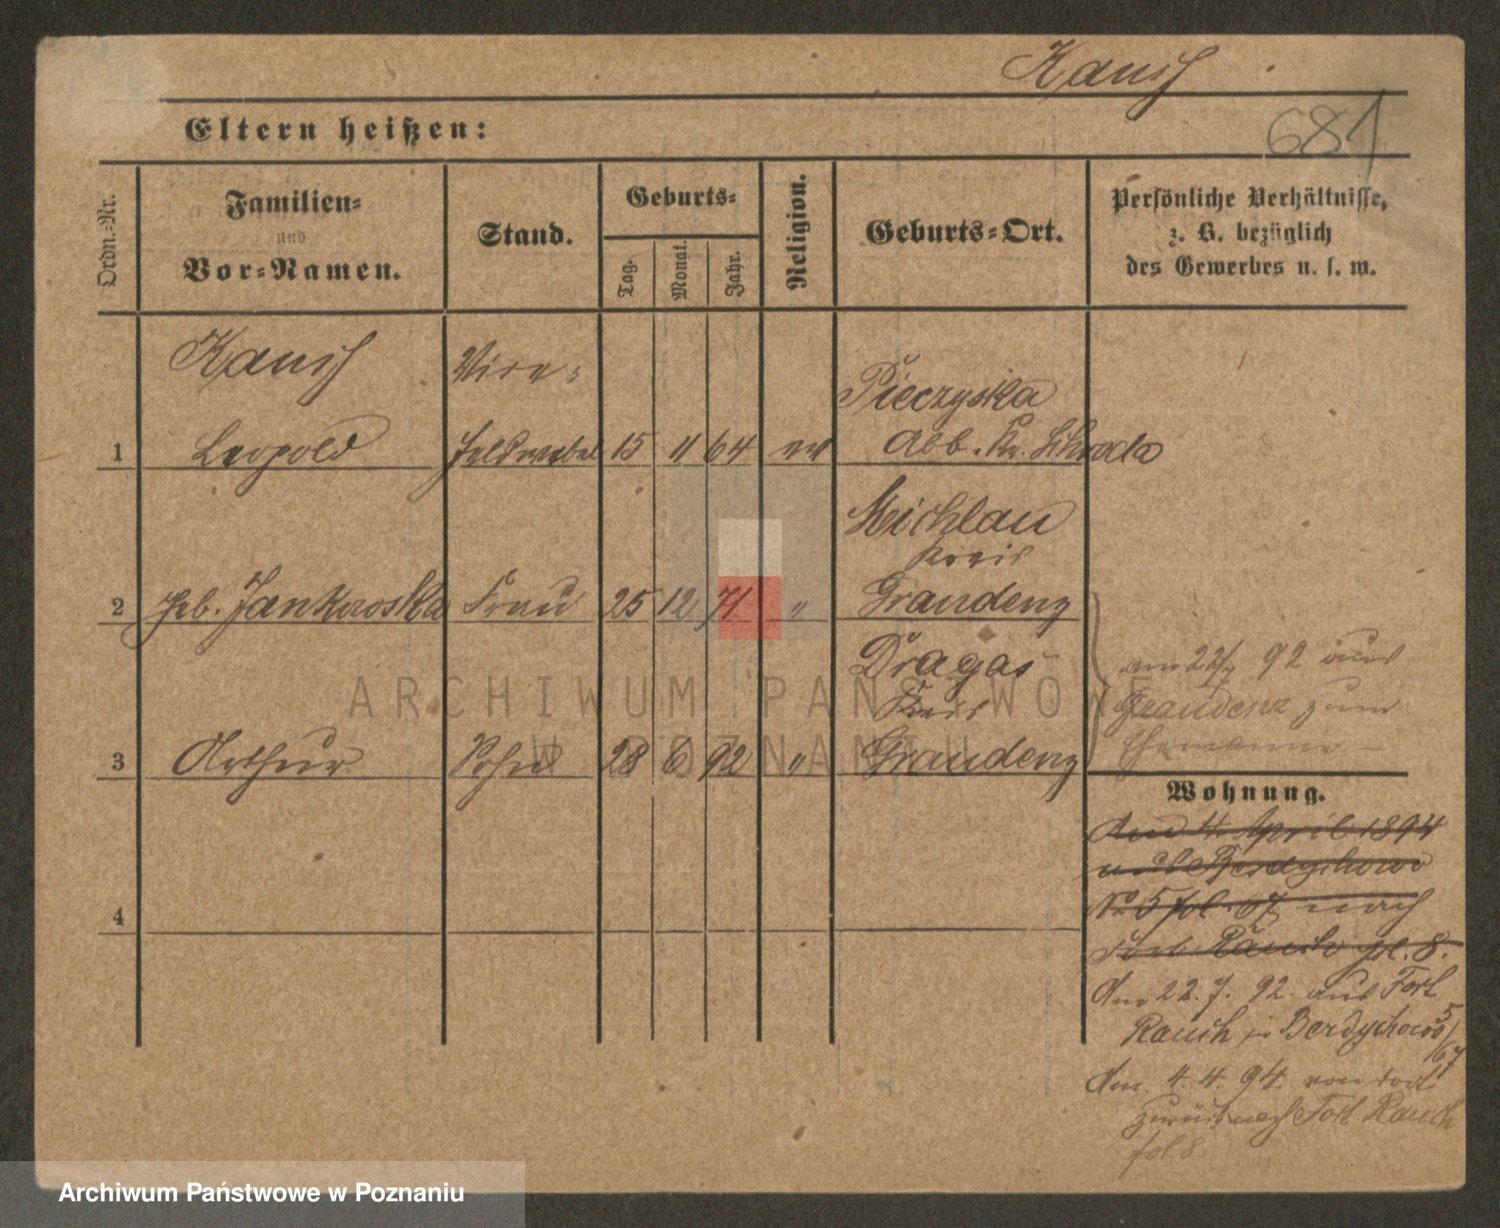 Kausch
681
Eltern heißen:
Ordn.-Nr.
Familien-
und
Vor-Namen.
Stand.
Geburts-
Tag.
Monat.
Jahr.
Religion.
Geburts-Ort.
Persönliche Verhältnisse,
z. B. bezüglich
des Gewerbes u. s. w.
Kausch
Leopold
Vice-
feldwebel
1
15 11 64
ev
Pieczyska
Abb. Kr. Schroda
2
geb. Jankowska
Frau
25 12 71
"
Michlau
Kreis
Graudenz
3
Arthur
Sohn
28 6 92
"
Dragas
Kreis
Graudenz
am 22/7 92 aus
Graudenz zum
Ehemanne
4
Wohnung.
Am 4. April 1894
Berdychowo
No 5 fol. 67 nach
Fort Rauch fol. 8.
Am 22. 7. 92. aus Fort
Rauch in Berdychowo 5/67
Am. 4. 4. 94. von dort
zurück nach Fort Rauch
fol. 8.
ARCHIWUM PAŃSTWOWE
W POZNANIU
Archiwum Państwowe w Poznaniu